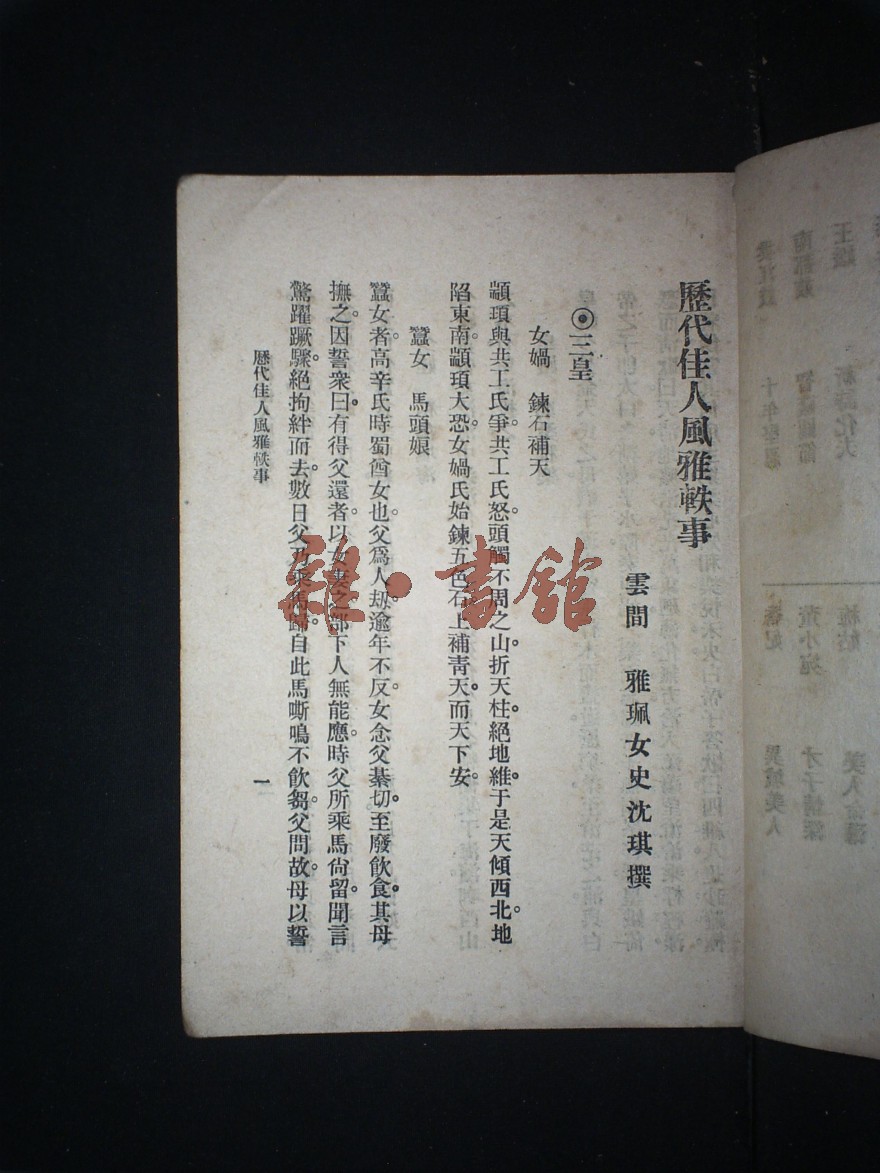 歷代佳人風雅軼事
雲間 雅珮女史沈琪撰
◉三皇
女媧 鍊石補天
顓頊與共工氏爭共工氏怒。頭觸不周之山。折天柱。絕地維。于是天傾西北。地
陷東南。顓頊大恐。女媧氏始鍊五色石。上補靑天。而天下安。
蠶女 馬頭娘
蠶女者。高辛氏時蜀酋女也。父爲人刼。逾年不反。女念父綦切。至廢飮食。其母
撫之。因誓衆曰。有得父還者。以女妻之。部下人無能應。時父所乘馬尙留。聞言
驚躍蹶驟。絕拘絆而去。數日父乃乘馬歸。自此馬嘶鳴不飮芻。父問故。母以誓
歷代佳人風雅軼事
一
雜·書館